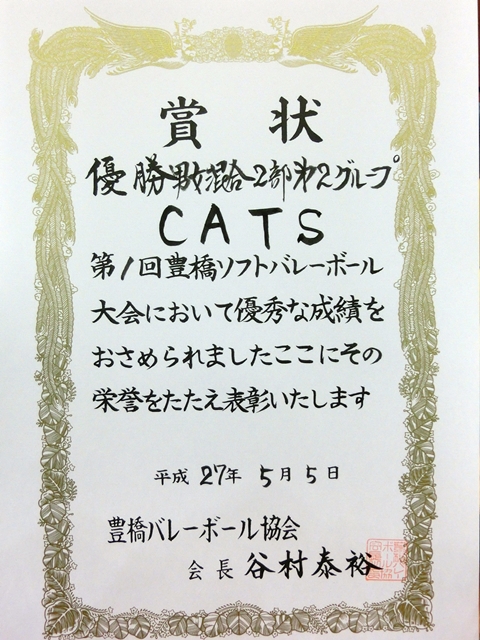 賞状
優勝男女混合2部第2グループ
CATS
第1回豊橋ソフトバレーボール
大会において優秀な成績を
おさめられましたここにその
栄誉をたたえ表彰いたします
平成27年5月5日
豊橋バレーボール協会
会長 谷村泰裕